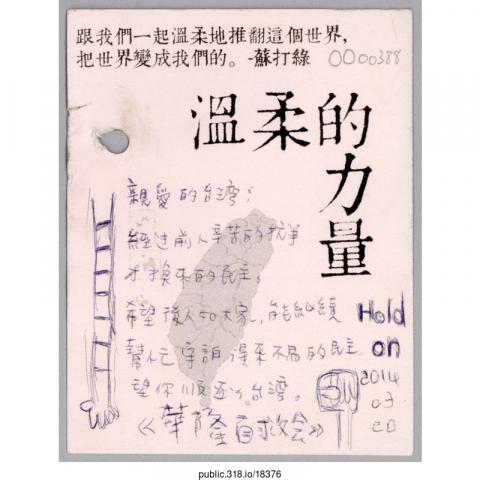 跟我們一起溫柔地推翻這個世界,
把世界變成我們的。-蘇打綠
0000388
溫柔的
力量
親愛的台湾:
經过前人辛苦的抗争
才換來的民主。
希望後人和大家,能繼續
幫忙守護得來不易的民主
望你順遂,台湾。
《華隆自救会》
Hold
on
2014
03
20
public.318.io/18376